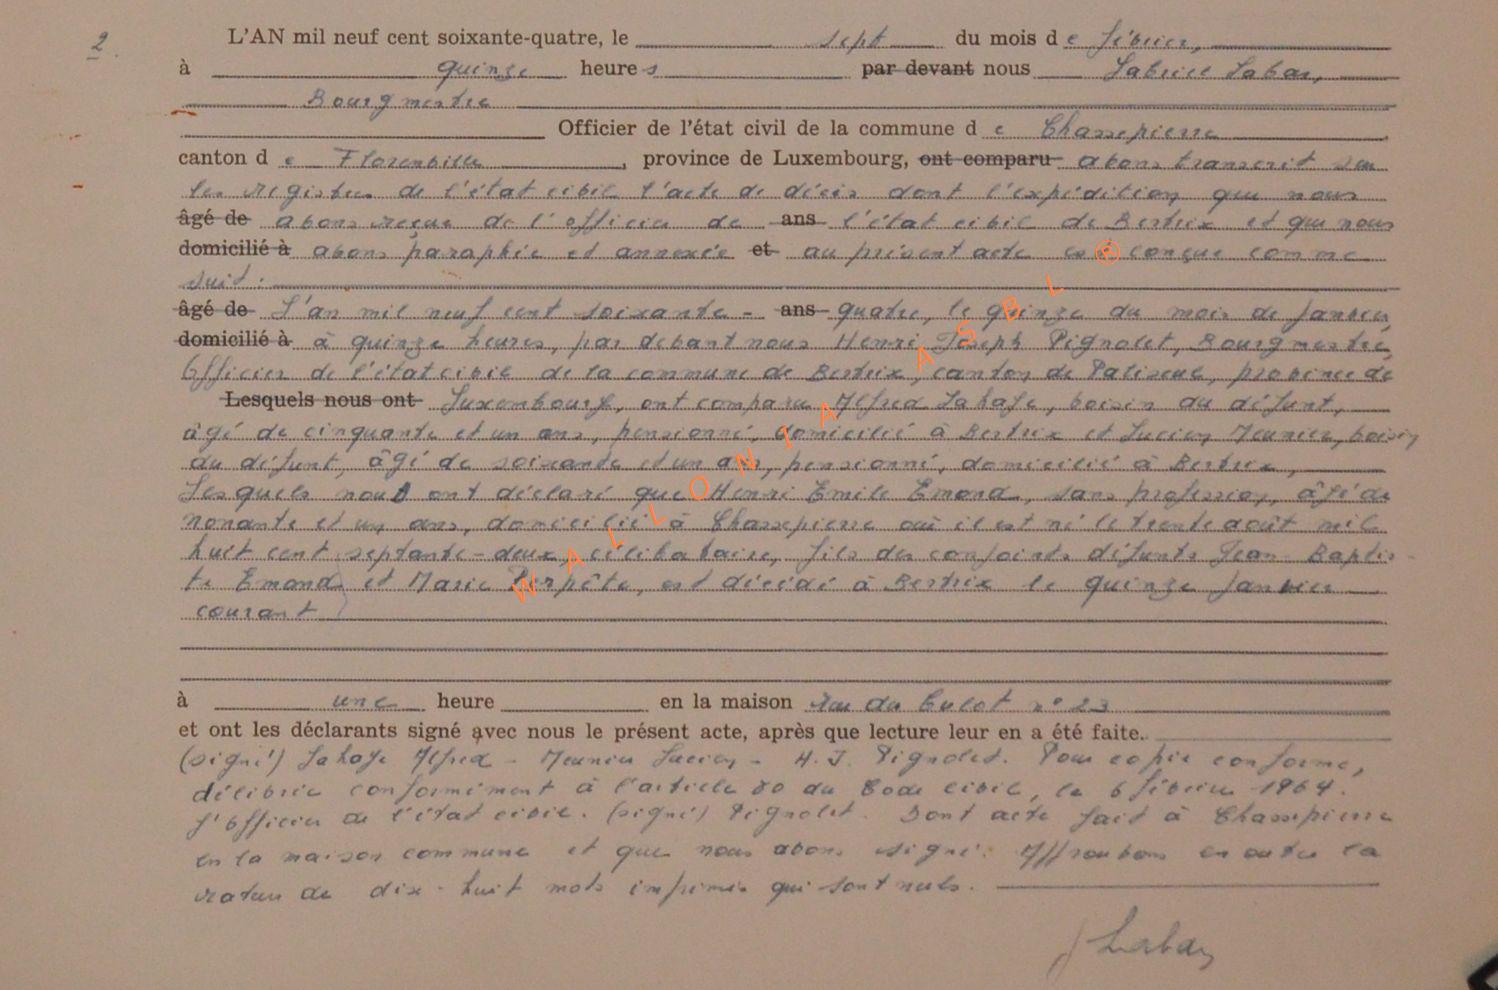 2.
L'AN mil neuf cent soixante-quatre, le sept du mois de février,
à quinze heures par devant nous Labar,
Bourgmestre
Officier de l'état civil de la commune de Chassepierre
canton de Florenville, province de Luxembourg, ont comparu avons transcrit sur
les registres de l'état civil l'acte de décès dont l'expédition que nous
âgé de avons reçue de l'officier de ans l'état civil de Bertrix et que nous
domicilié à avons paraphée et annexée et au présent acte es conçue comme
suit :
âgé de L'an mil neuf cent soixante - ans quatre, le quinze du mois de janvier,
domicilié à à quinze heures, par devant nous Henri Joseph Pignolet, Bourgmestre,
Officier de l'état civil de la commune de Bertrix, canton de Paliseul, province de
Lesquels nous ont Luxembourg, ont comparu Alfred Lahaye, voisin du défunt,
âgé de cinquante et un ans, pensionné, domicilié à Bertrix et Lucien Meunier, voisin
du défunt, âgé de soixante et un ans, pensionné, domicilié à Bertrix,
Lesquels nous ont déclaré que Henri Emile Emond, sans profession, âgé de
nonante et un ans, domicilié à Chassepierre où il est né le trente août mil
huit cent septante-deux, célibataire, fils des conjoints défunts Jean Baptis-
te Emond et Marie Perpête, est décédé à Bertrix le quinze janvier
courant
à une heure en la maison rue du Culot n° 23
et ont les déclarants signé avec nous le présent acte, après que lecture leur en a été faite.
(signé) Lahaye Alfred - Meunier Lucien - H. J. Pignolet. Pour copie conforme,
délivrée conformément à l'article 80 du Code civil, le 6 février 1964.
L'Officier de l'état civil. (signé) Pignolet. Dont acte fait à Chassepierre
en la maison commune et que nous avons signé. Approuvons en outre la
rature de dix-huit mots imprimés qui sont nuls.
Labar
WALLONIA ASBL ®